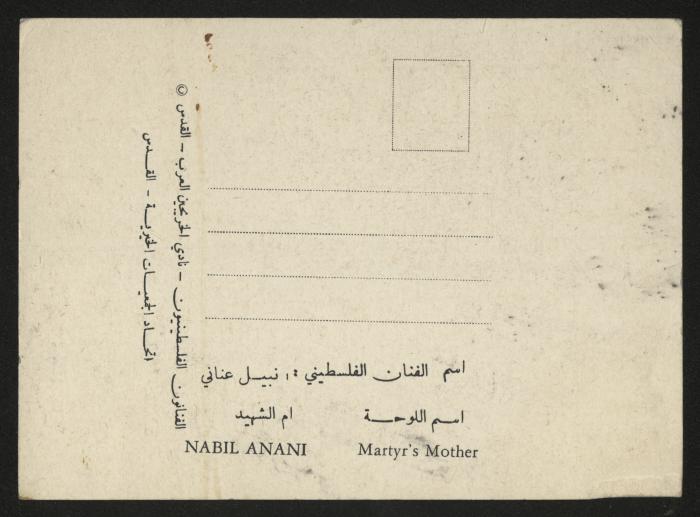 © الفنانون الفلسطينيون - نادي الخريجين العرب - القدس
اتحاد الجمعيات الخيرية - القدس
اسم الفنان الفلسطيني : نبيل عناني
اسم اللوحة ام الشهيد
NABIL ANANI Martyr's Mother